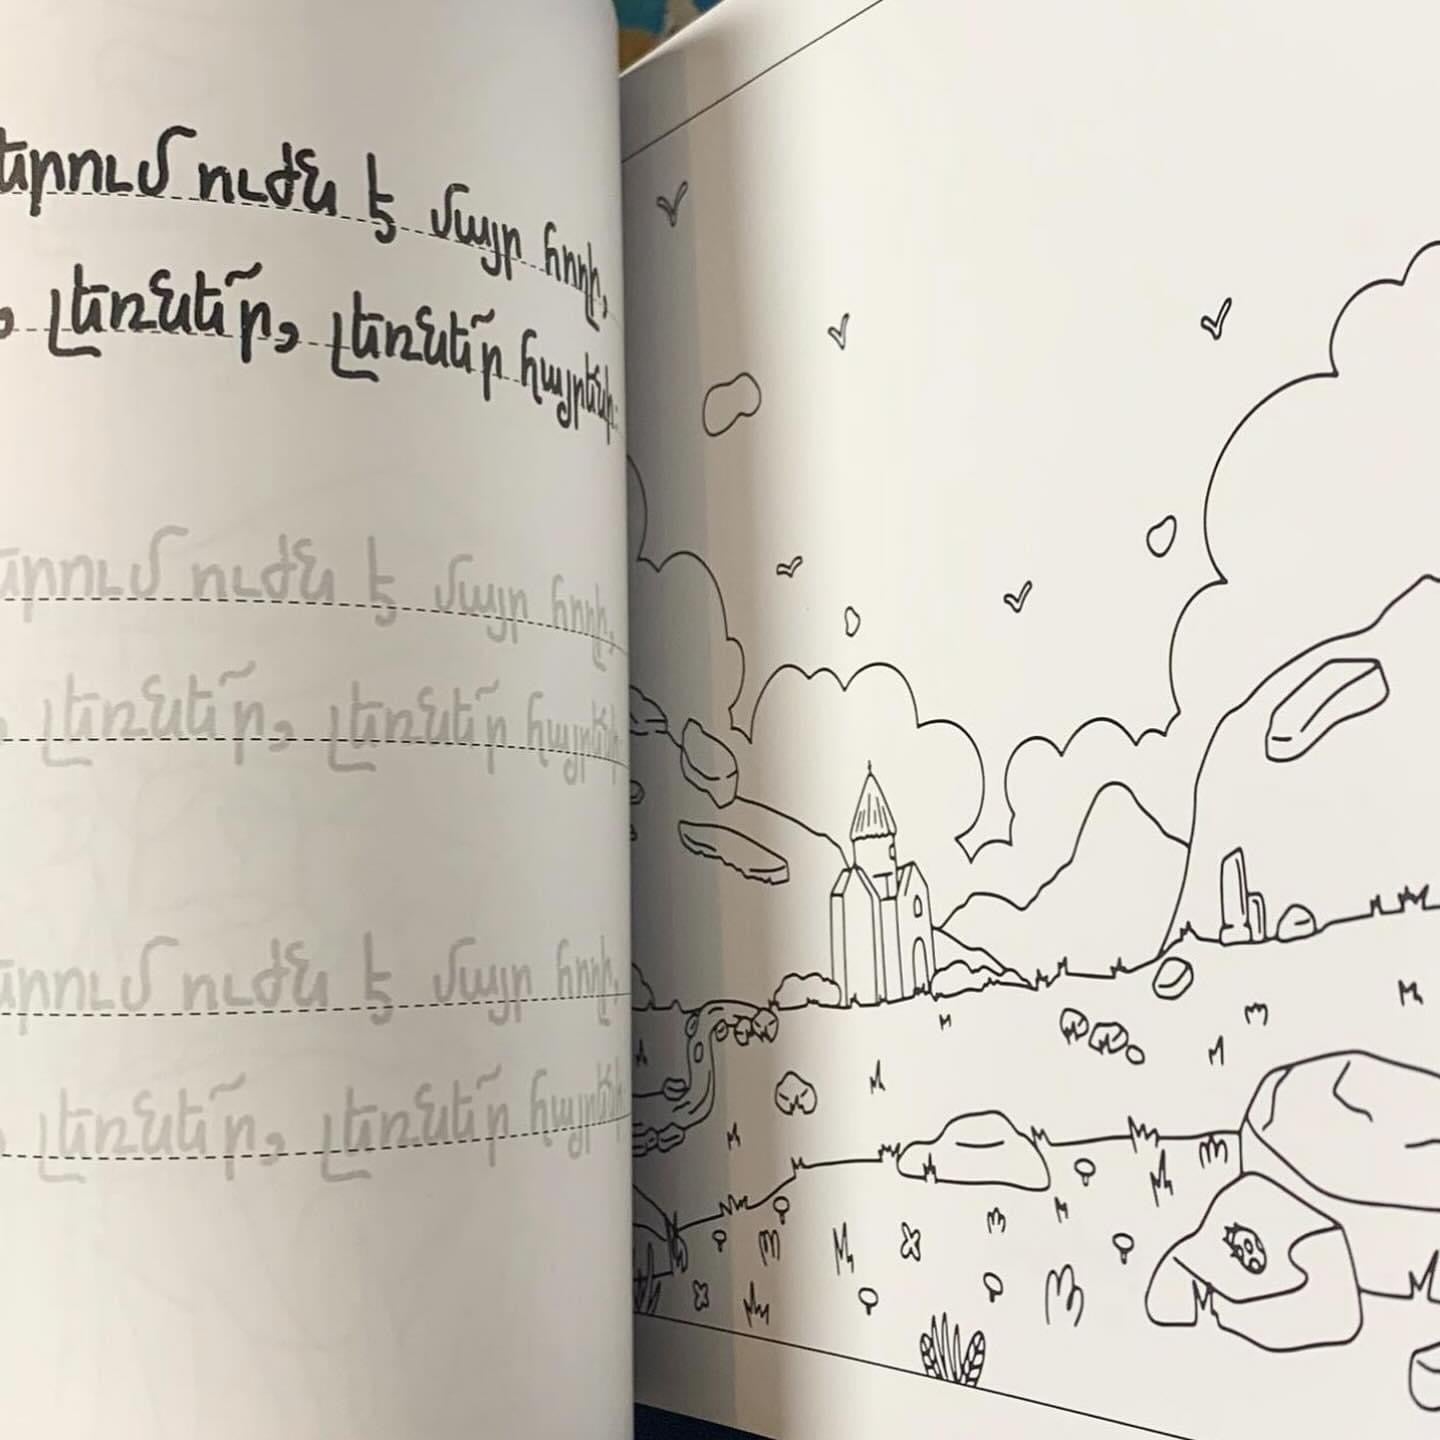 երում ուժն է մայր հողի,
, լեռնե՜ր, լեռնե՜ր հայրենի։
երում ուժն է մայր հողի,
, լեռնե՜ր, լեռնե՜ր հայրենի։
երում ուժն է մայր հողի,
, լեռնե՜ր, լեռնե՜ր հայրենի։